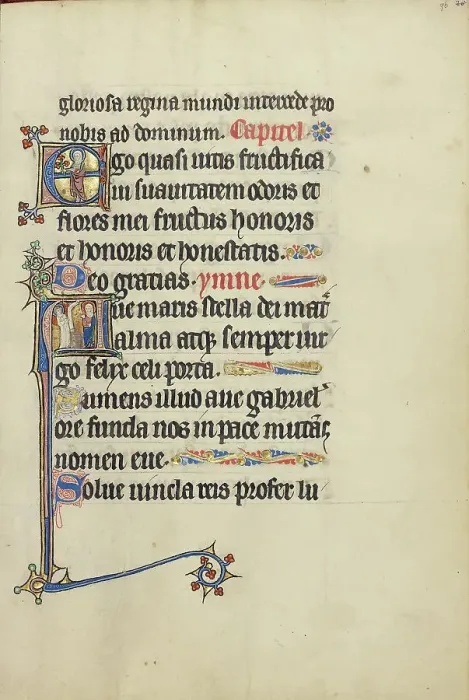 gloriosa regina mundi intercede pro
nobis ad dominum. Capitel
Ego quasi uitis fructifica
ui suauitatem odoris et
flores mei fructus honoris
et honoris et honestatis.
Deo gratias. ymne
Aue maris stella dei mat̄
alma atq; semper uir
go felix celi porta.
Sumens illud aue gabriel'
ore funda nos in pace mutās
nomen eue.
Solue uincla reis profer lu